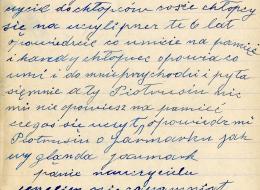 życie do chłopców wasie chłopcy
się na uczyli przez te 6 lat
opowiedzcie co umicie na pamięć
i karzdy chłopiec opowia co
umi i do mnie przychodzi i pyta
się mnie a ty Piotrusiu nic
mi nie opowiesz na pamięć
czegoś się uczył, opowiedz mi
Piotrusiu o jarmarku jak
wy glanda jarmark
panie nauczycielu